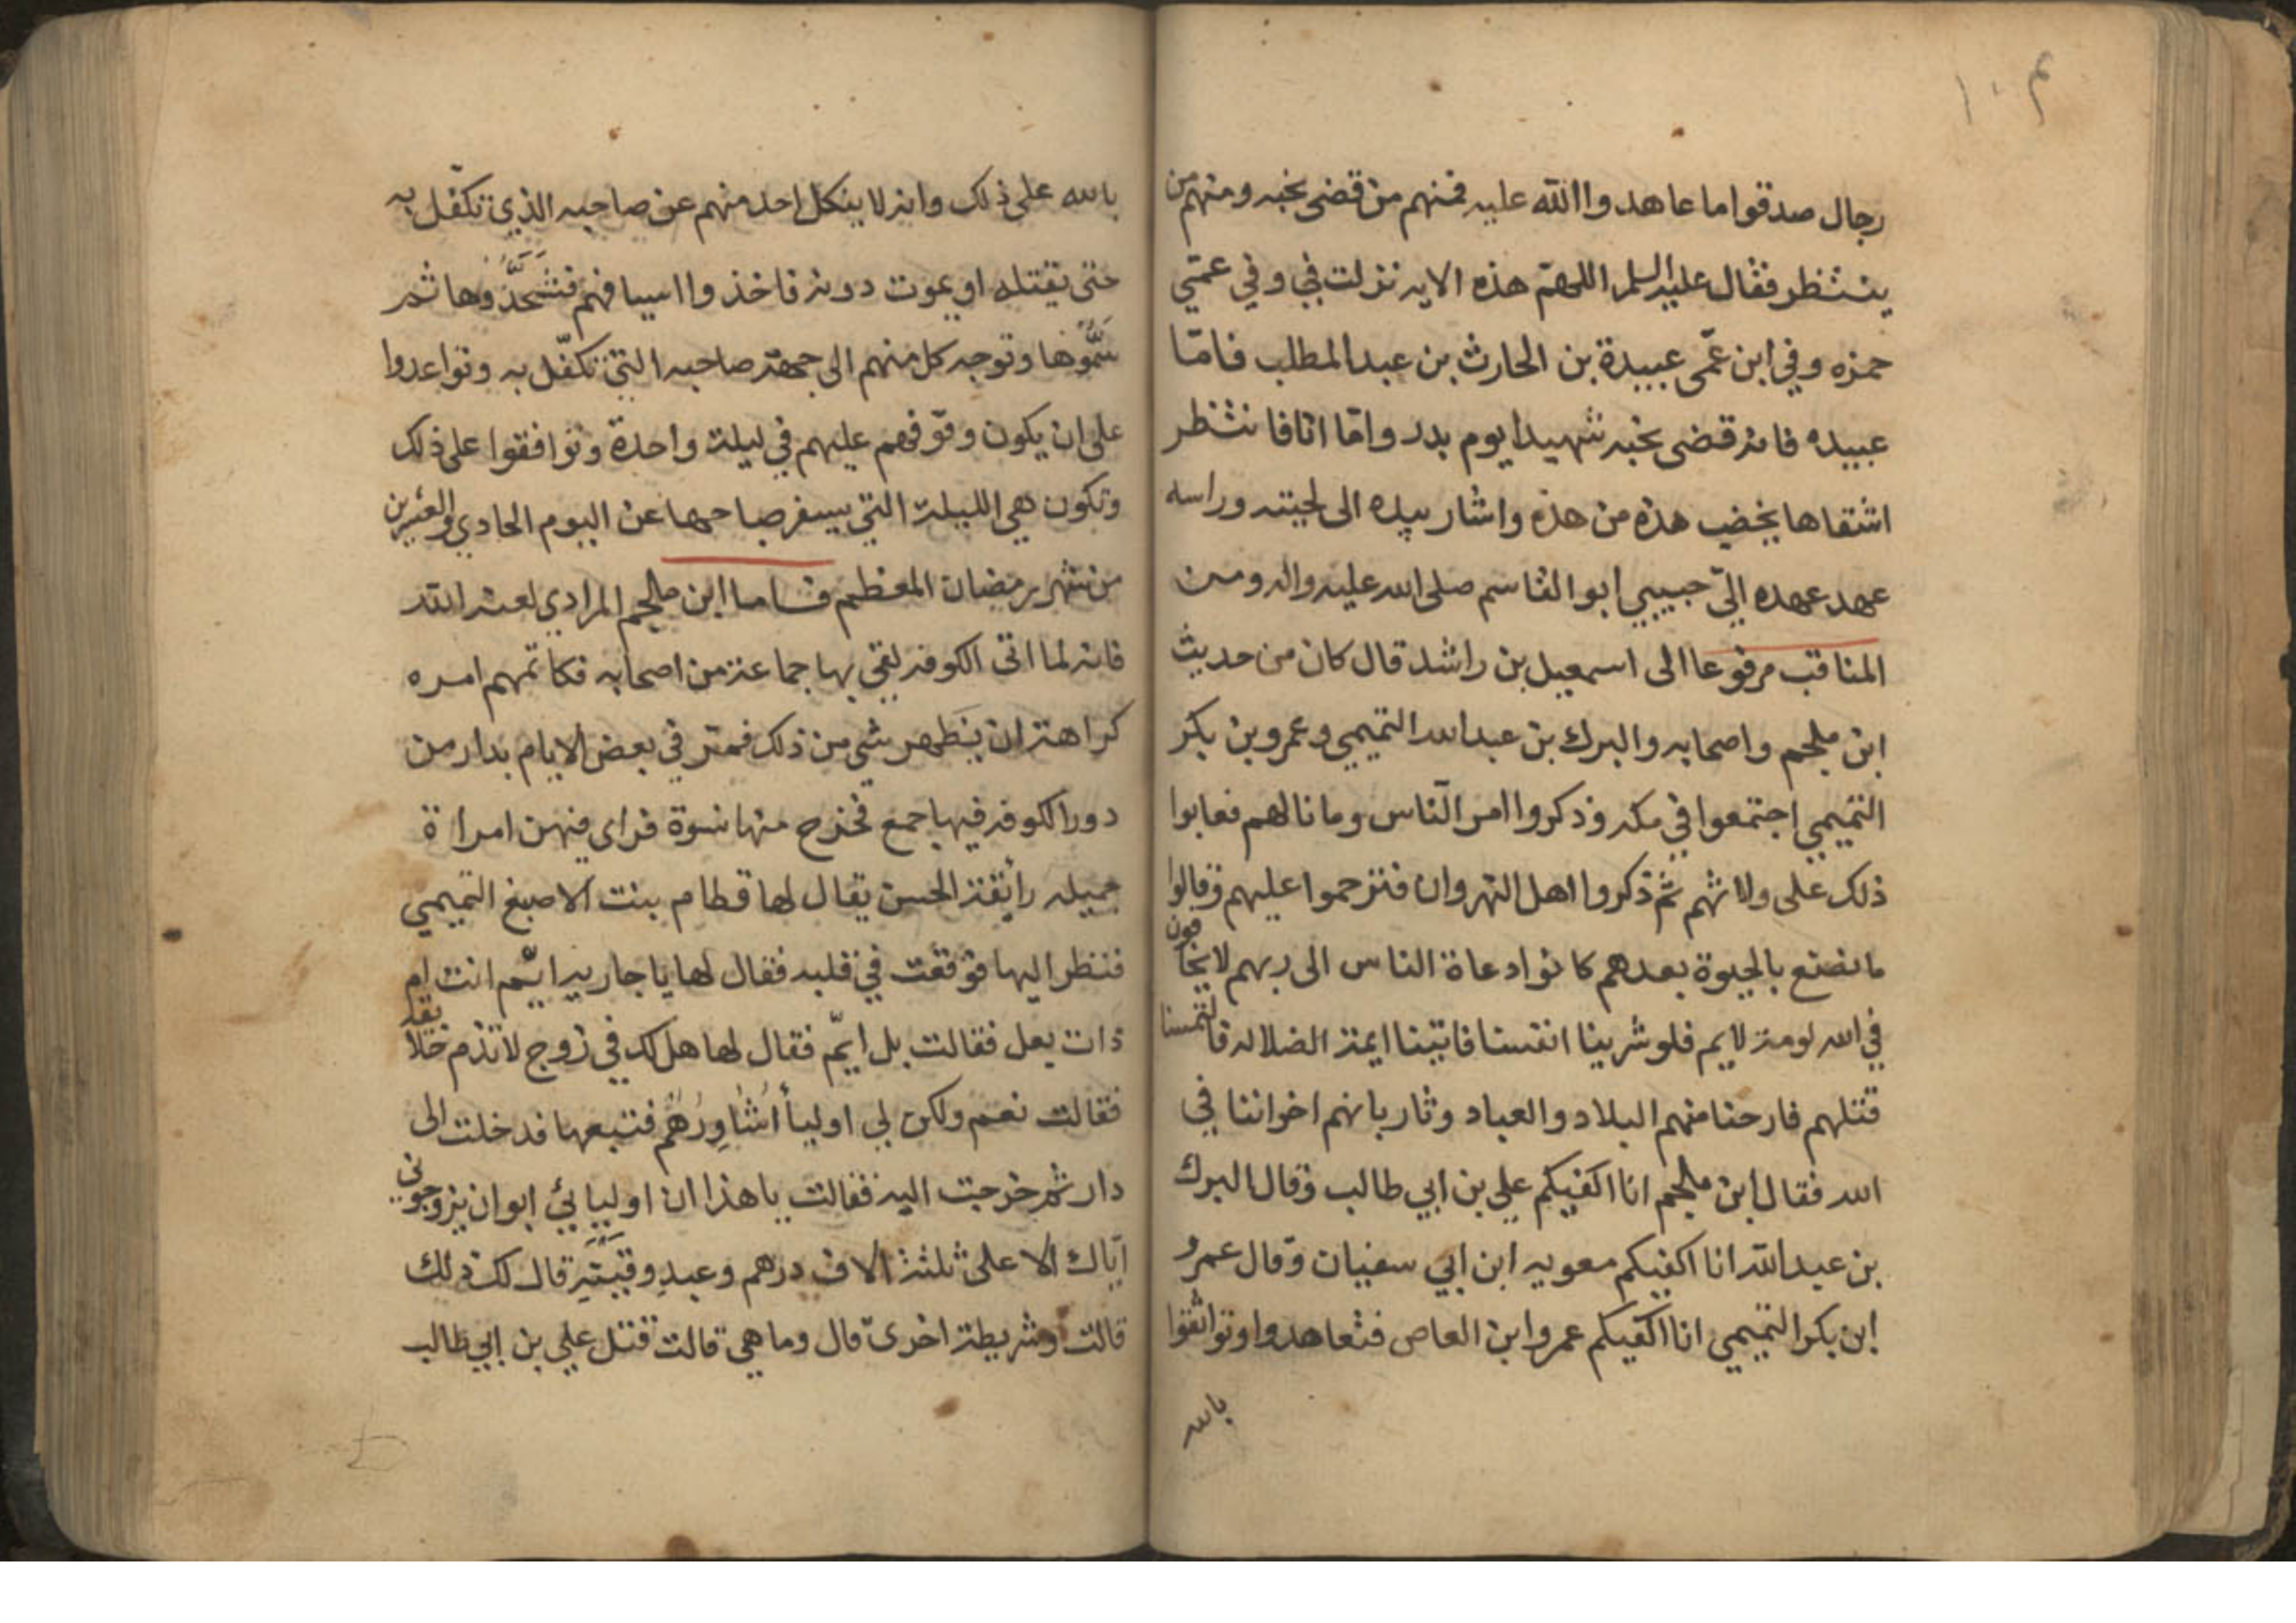 ١٠٣
رجال صدقوا ما عاهدوا الله عليه فمنهم من قضى نحبه ومنهم من
ينتظر فقال عليه السلم اللهمّ هذه الايه نزلت فيّ وفي عمّي
حمزه وفي ابن عمّي عبيدة بن الحارث بن عبد المطلب فامّا
عبيده فانه قضى نحبه شهيدا يوم بدر وامّا انا فانتظر
اشقاها يخضب هذه من هذه واشار بيده الى لحيته وراسه
عهد عهده اليّ حبيبي ابو القاسم صلى الله عليه واله ومن
المناقب مرفوعا الى اسمعيل بن راشد قال كان من حديث
ابن ملجم واصحابه والبرك بن عبد الله التميمي وعمرو بن بكر
التميمي اجتمعوا في مكه وذكروا امر النّاس وما نالهم فعابوا
ذلك على ولاتهم ثم ذكروا اهل النهروان فترحموا عليهم وقالوا
ما نصنع بالحيوة بعدهم كانوا دعاة الناس الى ربهم لا يخافون
في الله لومة لايم فلو شرينا انفسنا فاتينا ايمة الضلاله فالتمسنا
قتلهم فارحنا منهم البلاد والعباد وثار بانهم اخواننا في
الله فقال ابن ملجم انا اكفيكم علي بن ابي طالب وقال البرك
بن عبد الله انا اكفيكم معويه ابن ابي سفيان وقال عمرو
ابن بكر التميمي انا اكفيكم عمرو ابن العاص فتعاهدوا وتواثقوا
بالله
بالله على ذلك وانه لا ينكل احد منهم عن صاحبه الذي تكفّل به
حتى يقتله او يموت دونه فاخذوا اسيافهم فشحَّذُوها ثم
سَمُّوها وتوجه كل منهم الى جهة صاحبه التي تكفّل به وتواعدوا
على ان يكون وقوفهم عليهم في ليلة واحدة وتوافقوا على ذلك
وتكون هي الليلة التي يسفر صباحها عن اليوم الحادي والعشرين
من شهر رمضان المعظم فاما ابن ملجم المرادي لعنه الله
فانه لما اتى الكوفه لقي بها جماعة من اصحابه فكاتمهم امره
كراهة ان يَظهر شي من ذلك فمر في بعض الايام بدار من
دور الكوفه فيها جمع فخرج منها نسوة فراى فيهن امراة
جميله رأيقة الحسن يقال لها قطام بنت الاصبغ التميمي
فنظر اليها فوقعت في قلبه فقال لها يا جاريه ايّم انت ام
ذات بعل فقالت بل ايّم فقال لها هل لك في زوج لا تذم خلايقه
فقالت نعم ولكن لي اولياأ أُشَاوِرُهُم فتبعها فدخلت الى
دار ثم خرجت اليه فقالت يا هذا ان اوليائي ابوا ان يزوجوني
ايّاك الا على ثلثة الاف درهم وعبدٍ وقَيْنَةٍ قال لك ذلك
قالت وشريطة اخرى قال وما هي قالت قتل علي بن ابي طالب